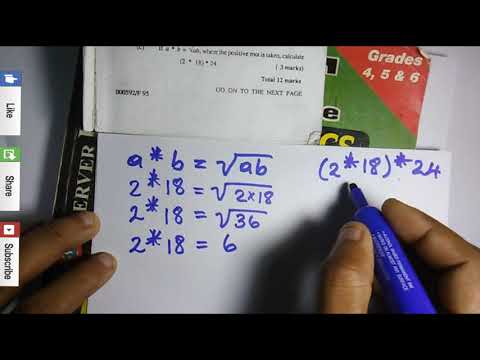 (c) If a * b = √ab, where the positive root is taken, calculate
(2 * 18) * 24
( 3 marks)
Total 12 marks
000592/F 95
GO ON TO THE NEXT PAGE
Grades
4, 5 & 6
Like
Share
Subscribe
ERVER
a * b = √ab
2 * 18 = √2×18
2 * 18 = √36
2 * 18 = 6
(2 * 18) * 24